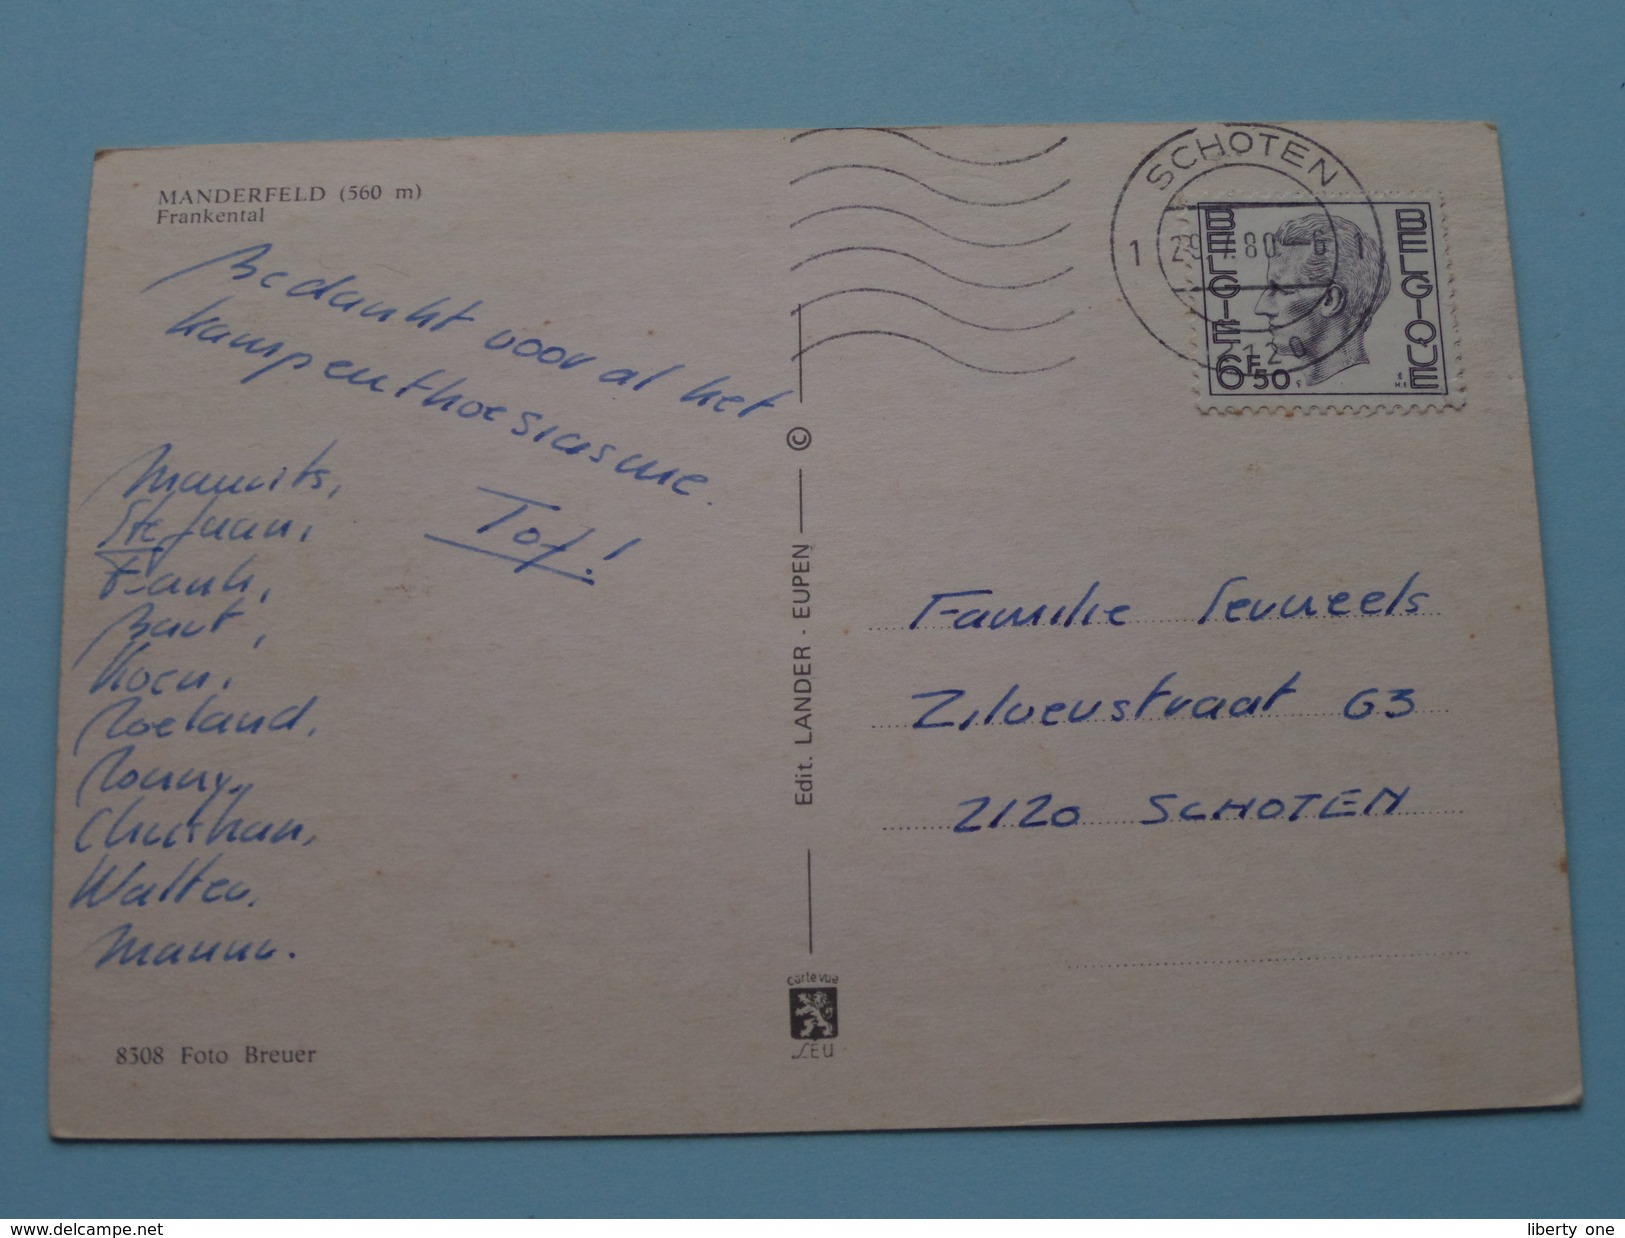 MANDERFELD (560 m)
Frankental
Bedankt voor al het
kampenthoesiasme.
Tof!
Maurits,
Stefaan,
Frank,
Bart,
Koen,
Roeland,
Ronny,
Christian,
Walter,
8308 Foto Breuer
Edit. LANDER - EUPEN
©
carte vue
S.E.U
SCHOTEN
1 29 80 -6 1
2120
BELGIE
BELGIQUE
6F50
Familie
Zilverstraat 63
2120 SCHOTEN
www.delcampe.net
liberty_one